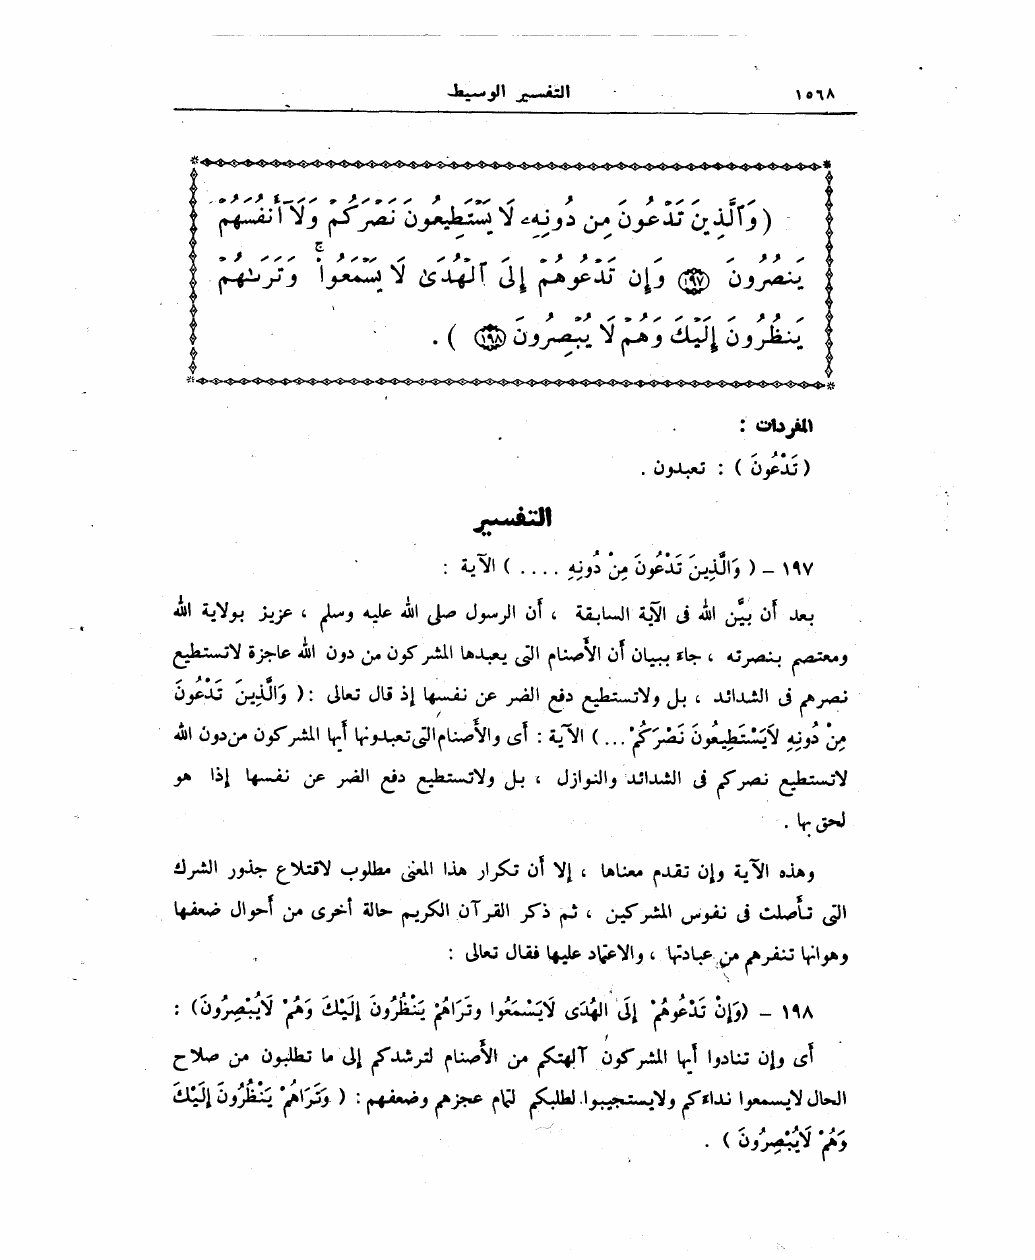 ١٥٦٨ التفسير الوسيط
( وَٱلَّذِينَ تَدْعُونَ مِن دُونِهِۦ لَا يَسْتَطِيعُونَ نَصْرَكُمْ وَلَآ أَنفُسَهُمْ
يَنصُرُونَ ١٩٧ وَإِن تَدْعُوهُمْ إِلَى ٱلْهُدَىٰ لَا يَسْمَعُواْ ۖ وَتَرَىٰهُمْ
يَنظُرُونَ إِلَيْكَ وَهُمْ لَا يُبْصِرُونَ ١٩٨ ) .
المفردات :
( تَدْعُونَ ) : تعبدون .
التفسير
١٩٧ – ( وَالَّذِينَ تَدْعُونَ مِنْ دُونِهِ .... ) الآية :
بعد أن بيَّن الله فى الآية السابقة ، أن الرسول صلى الله عليه وسلم ، عزيز بولاية الله
ومعتصم بنصرته ، جاء ببيان أن الأصنام التى يعبدها المشركون من دون الله عاجزة لاتستطيع
نصرهم فى الشدائد ، بل ولاتستطيع دفع الضر عن نفسها إذ قال تعالى :( وَالَّذِينَ تَدْعُونَ
مِنْ دُونِهِ لَايَسْتَطِيعُونَ نَصْرَكُمْ ... ) الآية : أى والأصنام التى تعبدونها أيها المشركون من دون الله
لاتستطيع نصركم فى الشدائد والنوازل ، بل ولاتستطيع دفع الضر عن نفسها إذا هو
لحق بها .
وهذه الآية وإن تقدم معناها ، إلا أن تكرار هذا المعنى مطلوب لاقتلاع جذور الشرك
التى تأصلت فى نفوس المشركين ، ثم ذكر القرآن الكريم حالة أخرى من أحوال ضعفها
وهوانها تنفرهم من عبادتها ، والاعتماد عليها فقال تعالى :
١٩٨ – (وَإِنْ تَدْعُوهُمْ إِلَى الْهُدَى لَايَسْمَعُوا وتَرَاهُمْ يَنْظُرُونَ إِلَيْكَ وَهُمْ لَايُبْصِرُونَ) :
أى وإن تنادوا أيها المشركون آلهتكم من الأصنام لترشدكم إلى ما تطلبون من صلاح
الحال لايسمعوا نداءكم ولايستجيبوا لطلبكم لتمام عجزهم وضعفهم : ( وَتَرَاهُمْ يَنْظُرُونَ إِلَيْكَ
وَهُمْ لَايُبْصِرُونَ ) .